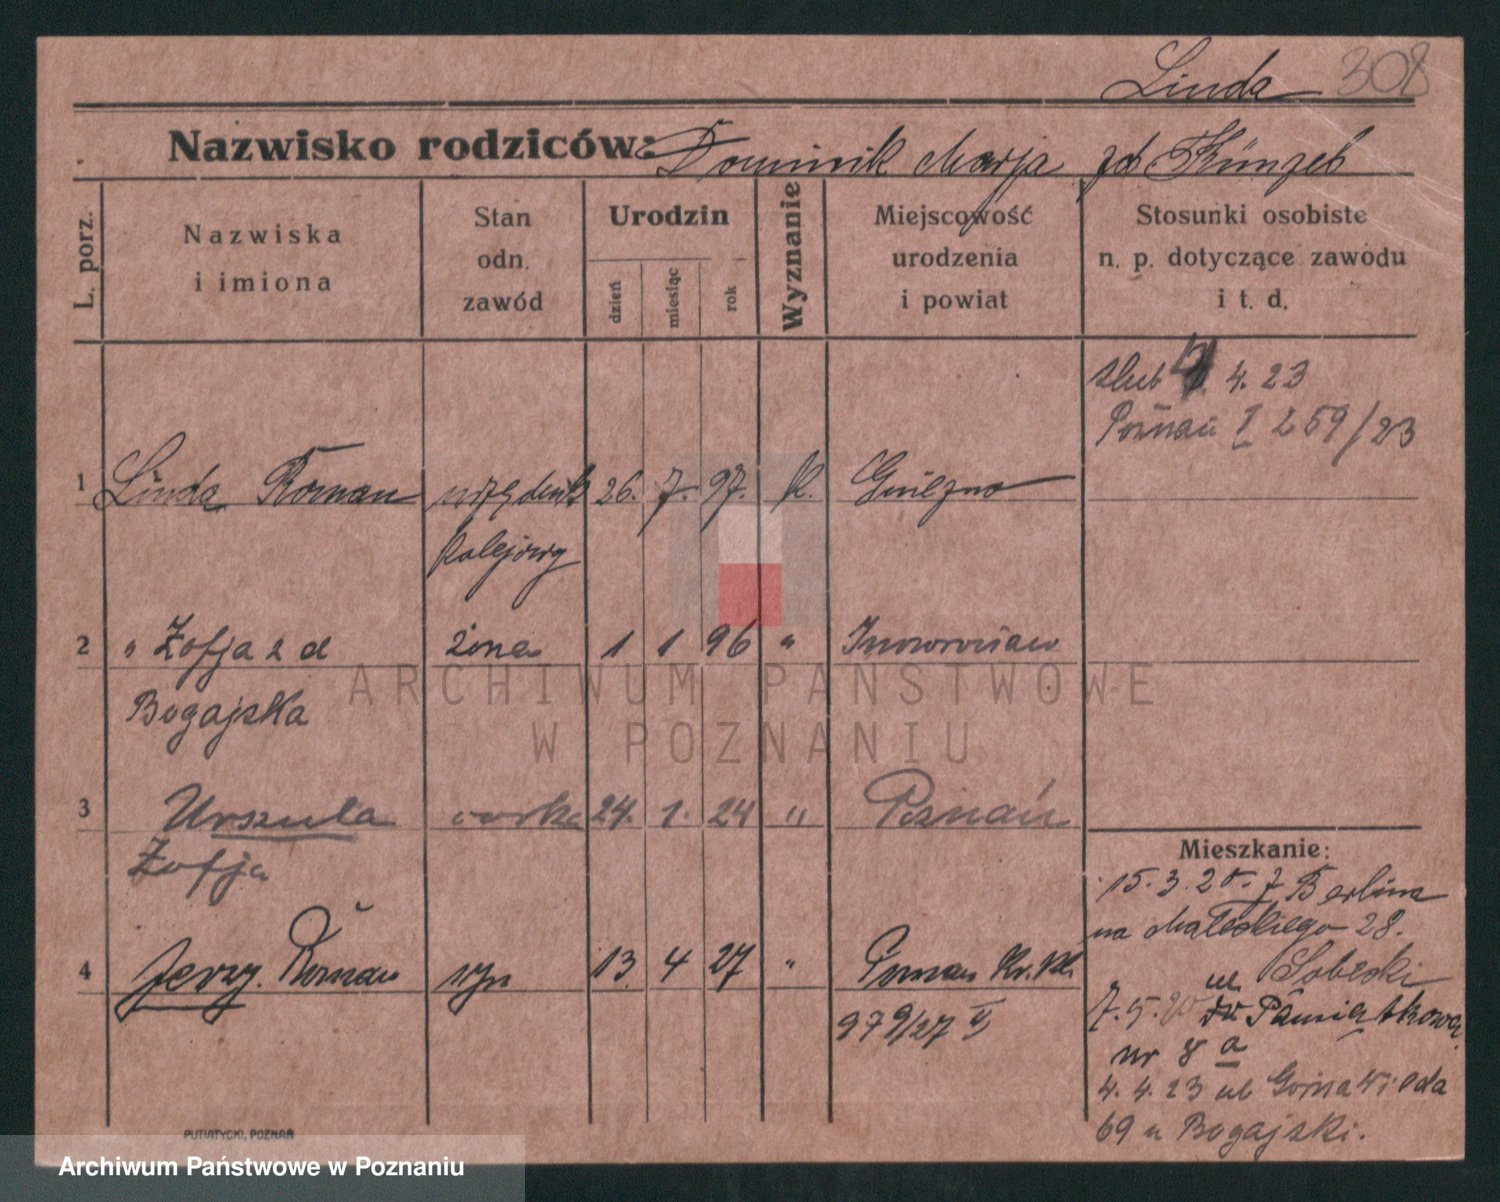 Linda 308
Nazwisko rodziców: Dominik Marja zd Künzel
L. porz.
Nazwiska
i imiona
Stan
odn.
zawód
Urodzin
dzień
miesiąc
rok
Wyznanie
Miejscowość
urodzenia
i powiat
Stosunki osobiste
n. p. dotyczące zawodu
i t. d.
ślub 4. 23
Poznań I 259/23
1 Linda Roman urzędnik 26. 7. 97. k. Gniezno
kolejowy
2 " Zofja z d żona 1 1 96 " Inowrocław
Bogajska
3 Urszula córka 24. 1. 24 " Poznań
Zofja
4 Jerzy Roman syn 13. 4 27 " Poznań
979/27 II
Mieszkanie:
15. 3. 20. z Berlina
na Małeckiego 28.
Sobecki
7. 5. 20 ul. Pamiątkowa
nr 8 a
4. 4. 23 ul Górna Wilda
69 u Bogajski.
PUTIATYCKI, POZNAŃ
ARCHIWUM PAŃSTWOWE
W POZNANIU
Archiwum Państwowe w Poznaniu